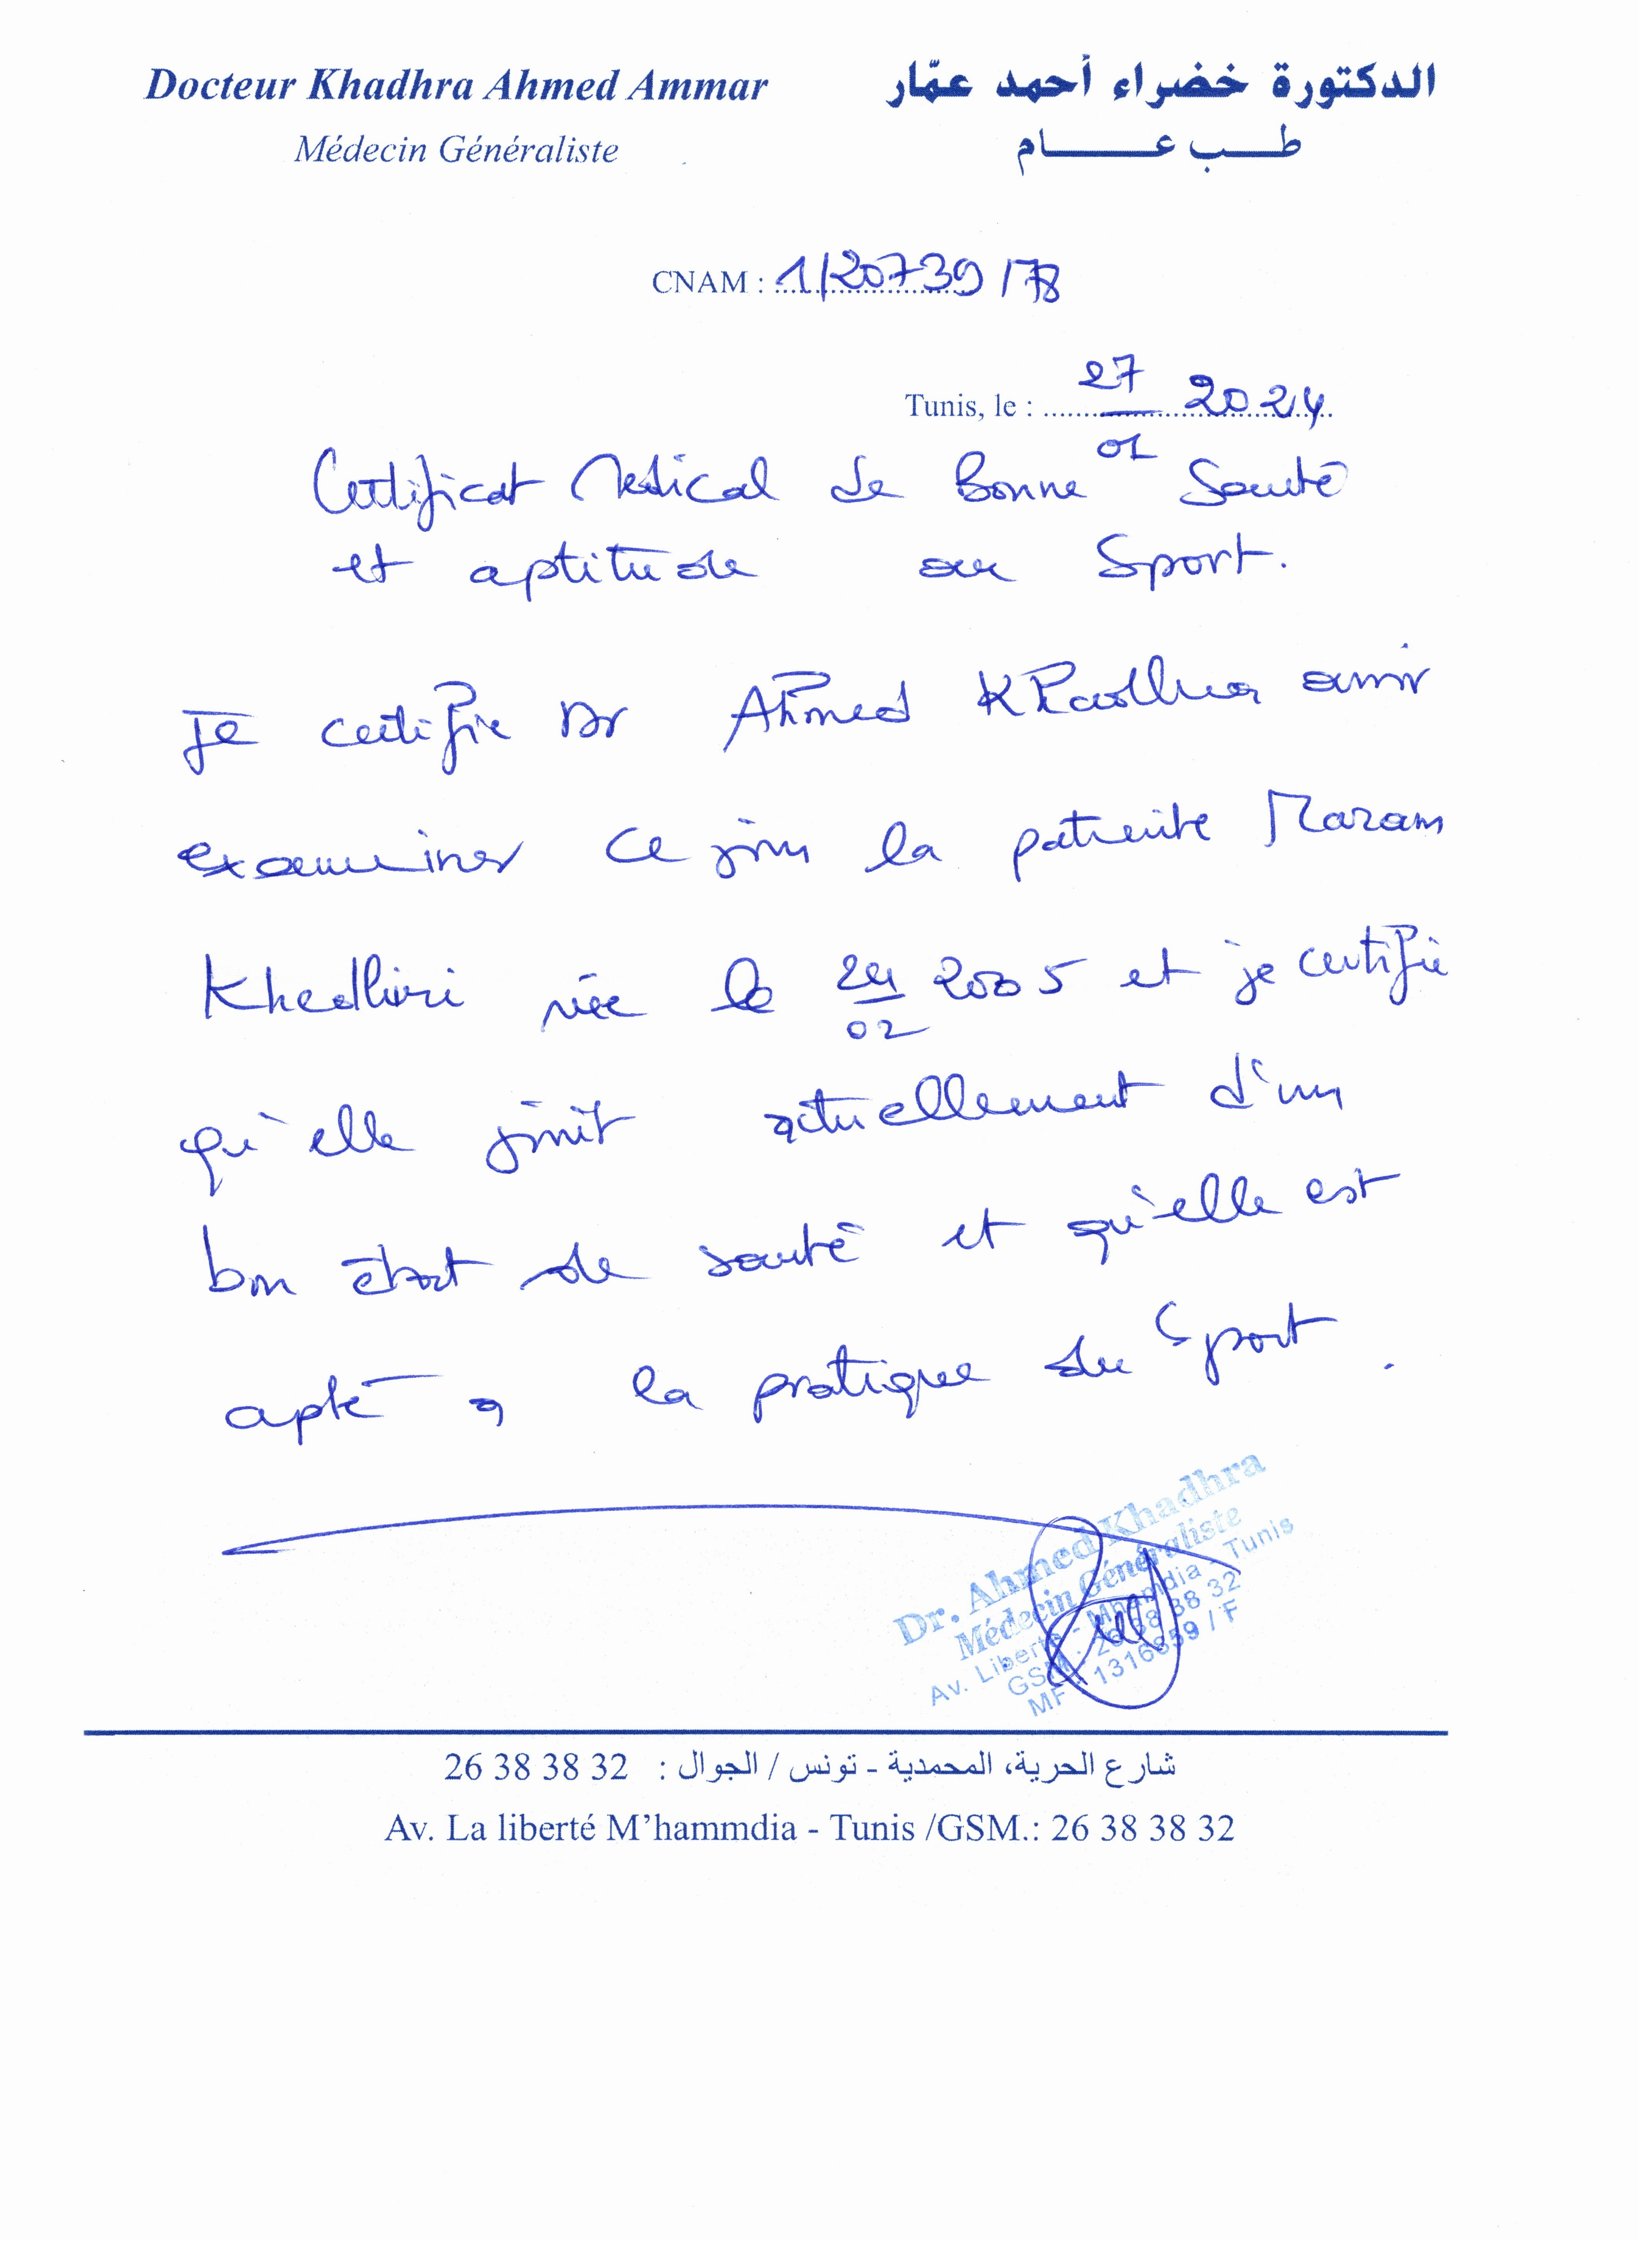 Docteur Khadhra Ahmed Ammar
الدكتورة خضراء أحمد عمّار
Médecin Généraliste
طب عام
CNAM : 1/20739/78
Tunis, le : 27/01 2024
Certificat Médical de Bonne Santé
et aptitude au Sport.
Je certifie Dr Ahmed Khadhra avoir
examiner ce jour la patiente Maram
née le 24/02 2005 et je certifie
qu'elle jouit actuellement d'un
bon état de santé et qu'elle est
apte à la pratique du Sport.
Dr. Ahmed Khadhra
Médecin Généraliste
Av. Liberté - Mhamdia - Tunis
GSM : 26 38 38 32
MF : /F
شارع الحرية، المحمدية - تونس / الجوال : 32 38 38 26
Av. La liberté M'hammdia - Tunis /GSM.: 26 38 38 32